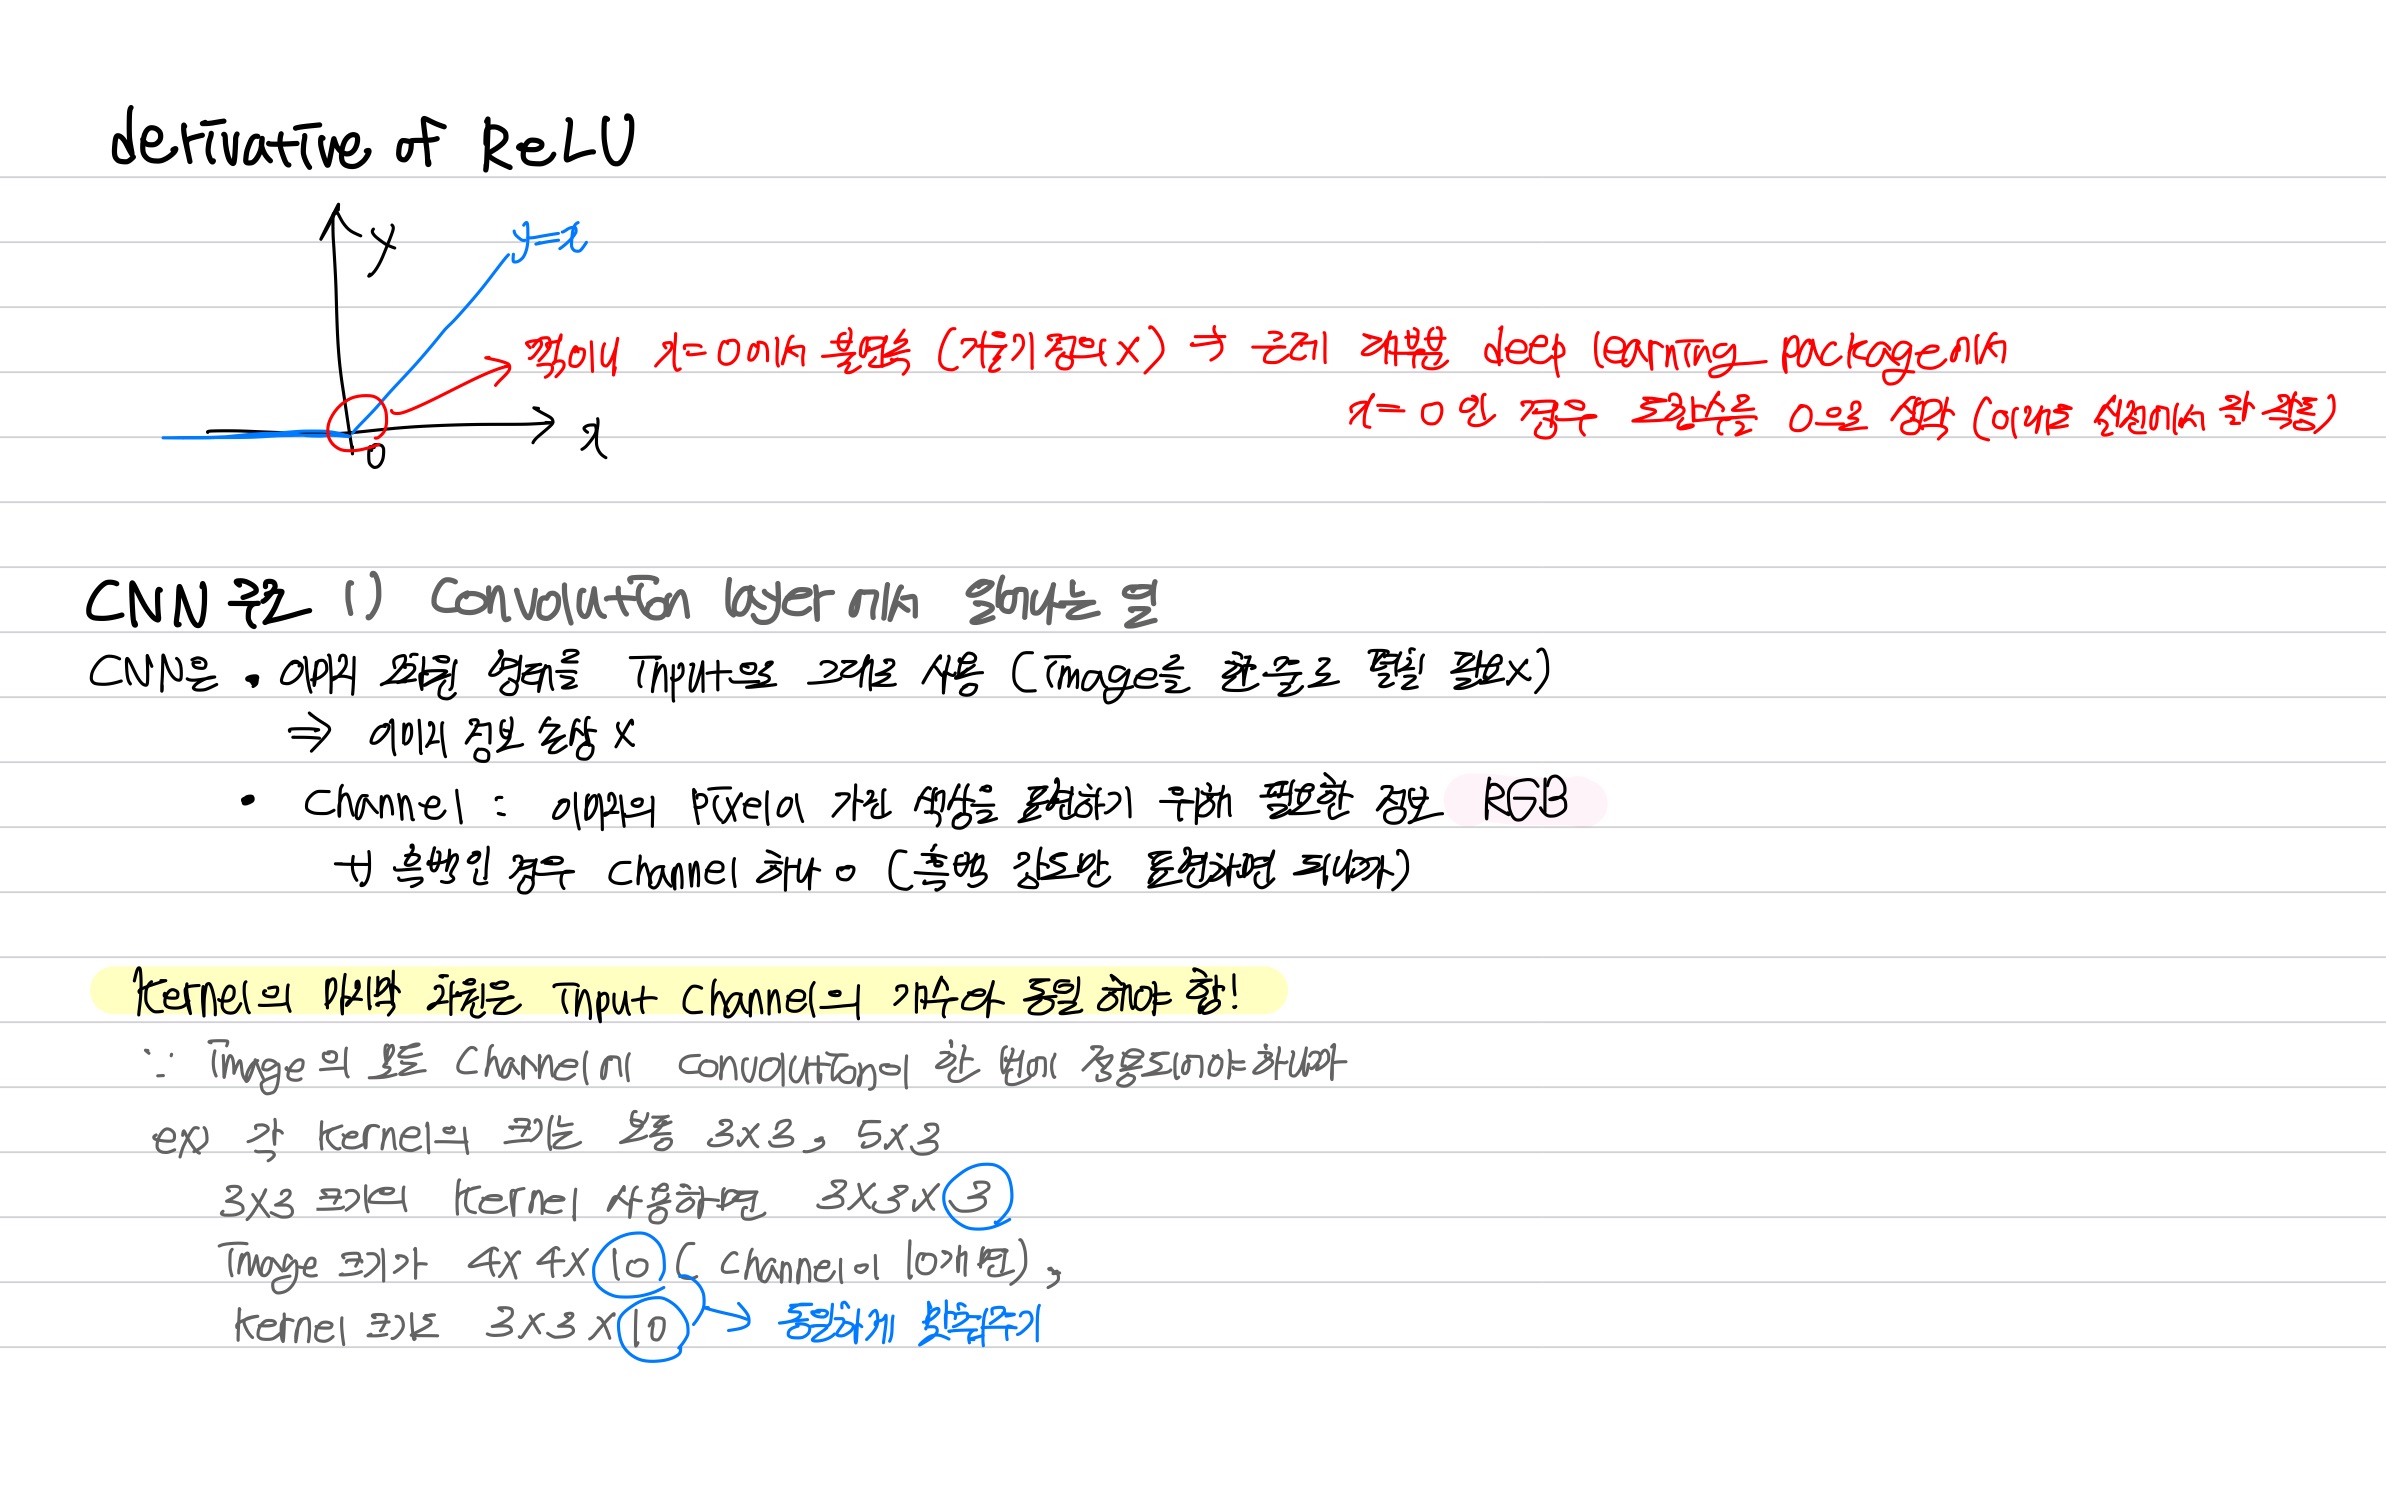 derivative of ReLU
y
y=x
꺾이니 x=0에서 불연속 (기울기 정의 x) → 근데 대부분 deep learning package에서
x=0인 경우 도함수를 0으로 생각 (이대로 실전에서 잘 작동)
x
0
CNN 구조 1) Convolution layer에서 일어나는 일
CNN은 • 이미지 2차원 형태를 Input으로 그대로 사용 (Image를 한 줄로 펼칠 필요x)
⇒ 이미지 정보 손상 x
• Channel : 이미지의 Pixel이 가진 색상을 표현하기 위해 필요한 정보 RGB
↔ 흑백인 경우 Channel 하나 ㅇ (흑백 강도만 표현하면 되니까)
Kernel의 마지막 차원은 Input Channel의 개수와 동일 해야 함!
∵ Image의 모든 Channel에 Convolution이 한 번에 적용되어야 하니까
ex) 각 Kernel의 크기는 보통 3x3, 5x3
3x3 크기의 Kernel 사용하면 3x3x3
Image 크기가 4x4x10 (Channel이 10개면),
Kernel 크기도 3x3x10 → 동일하게 맞춰주기